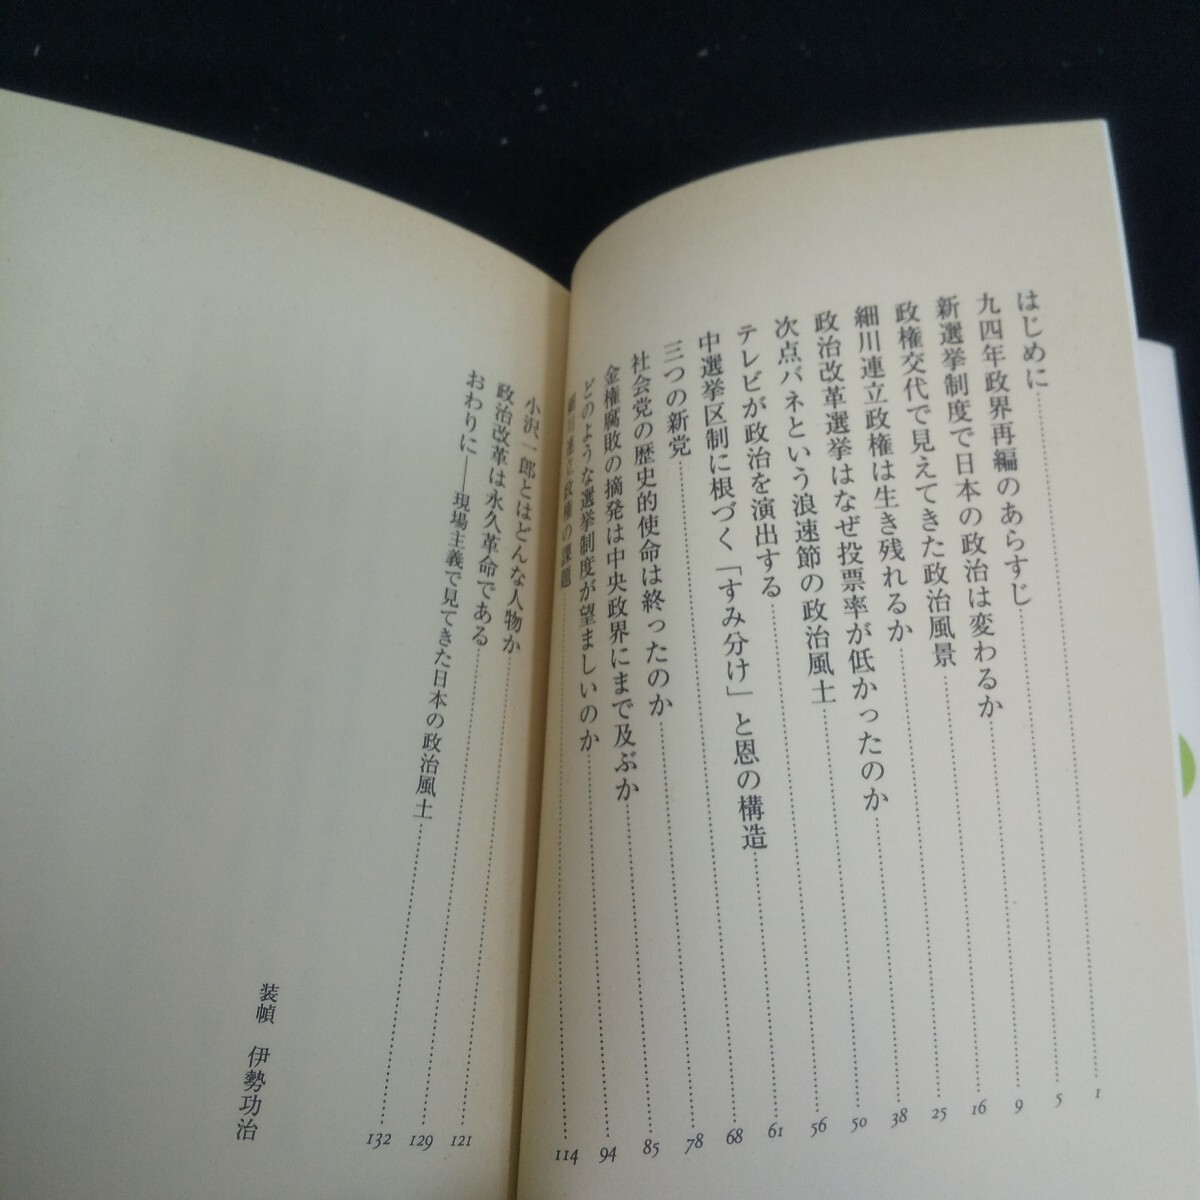 はじめに……1
九四年政界再編のあらすじ……5
新選挙制度で日本の政治は変わるか……9
政権交代で見えてきた政治風景……16
細川連立政権は生き残れるか……25
政治改革選挙はなぜ投票率が低かったのか……38
次点バネという浪速節の政治風土……50
テレビが政治を演出する……56
中選挙区制に根づく「すみ分け」と恩の構造……61
三つの新党……68
社会党の歴史的使命は終ったのか……78
金権腐敗の摘発は中央政界にまで及ぶか……85
どのような選挙制度が望ましいのか……94
細川連立政権の課題……114
小沢一郎とはどんな人物か……121
政治改革は永久革命である……129
おわりに――現場主義で見てきた日本の政治風土……132
装幀　伊勢功治